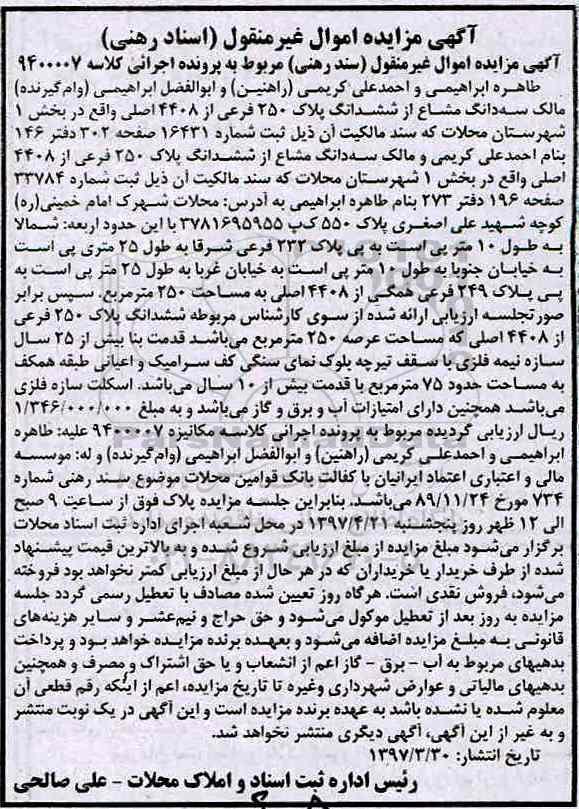 آگهی مزایده اموال غیرمنقول (اسناد رهنی)
آگهی مزایده اموال غیرمنقول (سند رهنی) مربوط به پرونده اجرائی کلاسه ۹۴۰۰۰۰۷
طاهره ابراهیمی و احمدعلی کریمی (راهنین) و ابوالفضل ابراهیمی (وام‌گیرنده)
مالک سه‌دانگ مشاع از ششدانگ پلاک ۲۵۰ فرعی از ۴۴۰۸ اصلی واقع در بخش ۱
شهرستان محلات که سند مالکیت آن ذیل ثبت شماره ۱۶۴۳۱ صفحه ۳۰۲ دفتر ۱۴۶
بنام احمدعلی کریمی و مالک سه‌دانگ مشاع از ششدانگ پلاک ۲۵۰ فرعی از ۴۴۰۸
اصلی واقع در بخش ۱ شهرستان محلات که سند مالکیت آن ذیل ثبت شماره ۳۳۷۸۴
صفحه ۱۹۶ دفتر ۲۷۳ بنام طاهره ابراهیمی به آدرس: محلات شهرک امام خمینی(ره)
کوچه شهید علی اصغری پلاک ۵۵۰ ک‌پ ۳۷۸۱۶۹۵۹۵۵ با این حدود اربعه: شمالا
به طول ۱۰ متر پی است به پی پلاک ۲۳۲ فرعی شرقا به طول ۲۵ متری پی است
به خیابان جنوبا به طول ۱۰ متر پی است به خیابان غربا به طول ۲۵ متر پی است به
پی پلاک ۲۴۹ فرعی همگی از ۴۴۰۸ اصلی به مساحت ۲۵۰ مترمربع. سپس برابر
صورتجلسه ارزیابی ارائه شده از سوی کارشناس مربوطه ششدانگ پلاک ۲۵۰ فرعی
از ۴۴۰۸ اصلی که مساحت عرصه ۲۵۰ مترمربع می‌باشد قدمت بنا بیش از ۲۵ سال
سازه نیمه فلزی با سقف تیرچه بلوک نمای سنگی کف سرامیک و اعیانی طبقه همکف
به مساحت حدود ۷۵ مترمربع با قدمت بیش از ۱۰ سال می‌باشد. اسکلت سازه فلزی
می‌باشد همچنین دارای امتیازات آب و برق و گاز می‌باشد و به مبلغ ۱/۳۴۶/۰۰۰/۰۰۰
ریال ارزیابی گردیده مربوط به پرونده اجرائی کلاسه مکانیزه ۹۴۰۰۰۰۷ علیه: طاهره
ابراهیمی و احمدعلی کریمی (راهنین) و ابوالفضل ابراهیمی (وام‌گیرنده) و له: موسسه
مالی و اعتباری اعتماد ایرانیان با کفالت بانک قوامین محلات موضوع سند رهنی شماره
۷۳۴ مورخ ۸۹/۱۱/۲۴ می‌باشد. بنابراین جلسه مزایده پلاک فوق از ساعت ۹ صبح
الی ۱۲ ظهر روز پنجشنبه ۱۳۹۷/۴/۲۱ در محل شعبه اجرای اداره ثبت اسناد محلات
برگزار می‌شود مبلغ مزایده از مبلغ ارزیابی شروع شده و به بالاترین قیمت پیشنهاد
شده از طرف خریدار یا خریداران که در هر حال از مبلغ ارزیابی کمتر نخواهد بود فروخته
می‌شود، فروش نقدی است. هرگاه روز تعیین شده مصادف با تعطیل رسمی گردد جلسه
مزایده به روز بعد از تعطیل موکول می‌شود و حق حراج و نیم‌عشر و سایر هزینه‌های
قانونی به مبلغ مزایده اضافه می‌شود و بعهده برنده مزایده خواهد بود و پرداخت
بدهیهای مربوط به آب - برق - گاز اعم از انشعاب و یا حق اشتراک و مصرف و همچنین
بدهیهای مالیاتی و عوارض شهرداری وغیره تا تاریخ مزایده، اعم از اینکه رقم قطعی آن
معلوم شده یا نشده باشد به عهده برنده مزایده است و این آگهی در یک نوبت منتشر
و به غیر از این آگهی، آگهی دیگری منتشر نخواهد شد.
تاریخ انتشار: ۱۳۹۷/۳/۳۰
رئیس اداره ثبت اسناد و املاک محلات - علی صالحی